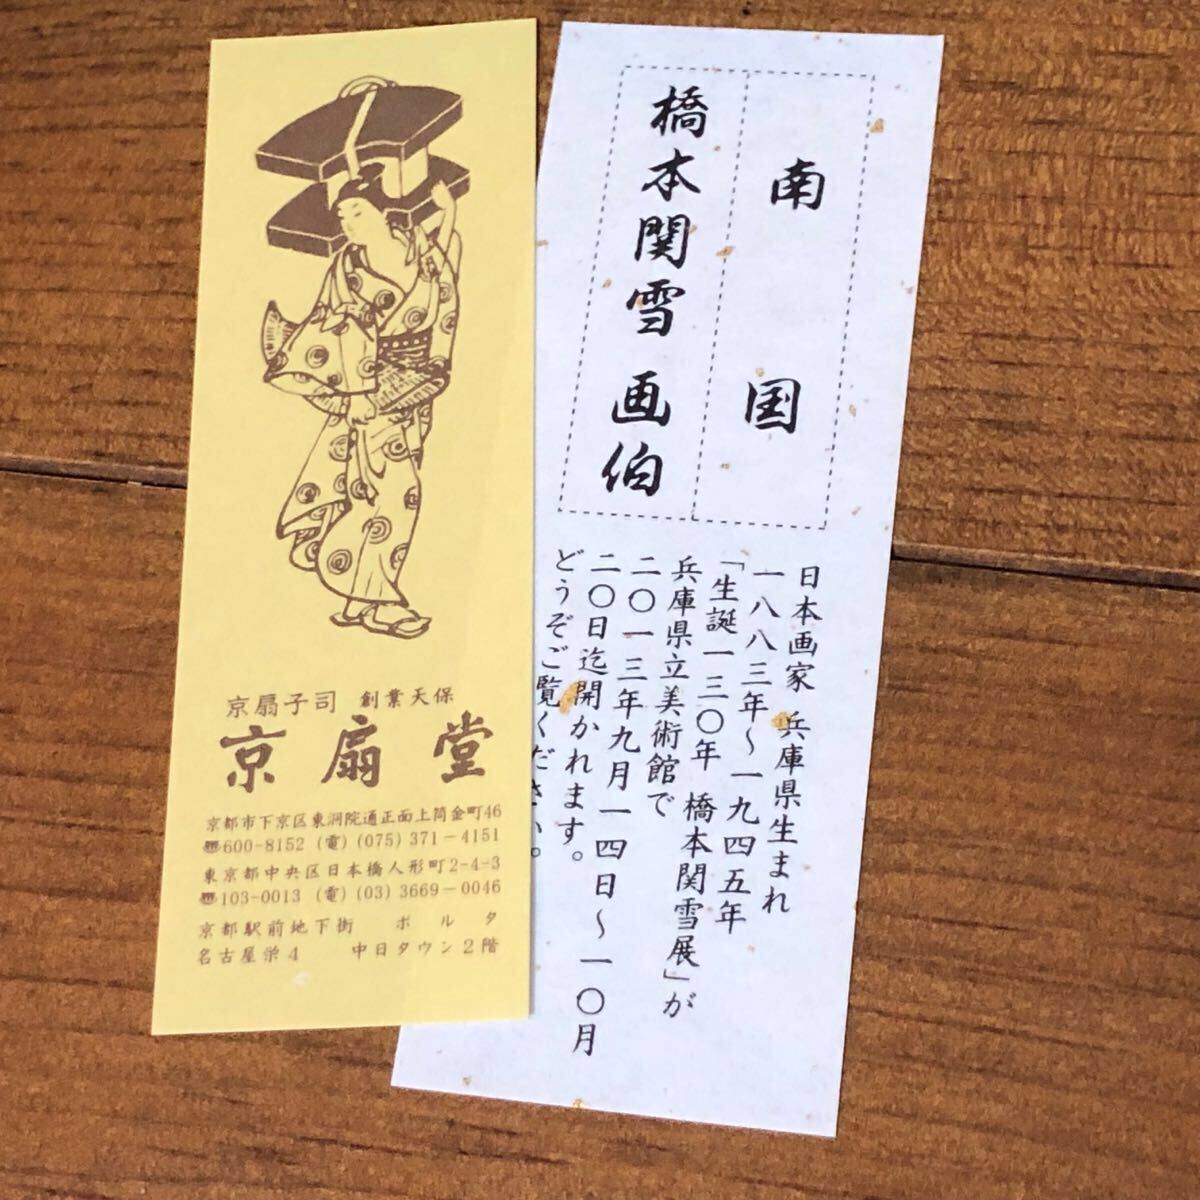 京扇子司 創業天保
京扇堂
京都市下京区東洞院通正面上筒金町46
☎600-8152 (電) (075) 371-4151
東京都中央区日本橋人形町2-4-3
☎103-0013 (電) (03) 3669-0046
京都駅前地下街 ポルタ
名古屋栄4 中日タウン2階
南国
橋本関雪画伯
日本画家 兵庫県生まれ
一八八三年～一九四五年
「生誕一三〇年 橋本関雪展」が
兵庫県立美術館で
二〇一三年九月一四日～一〇月
二〇日迄開かれます。
どうぞご覧ください。